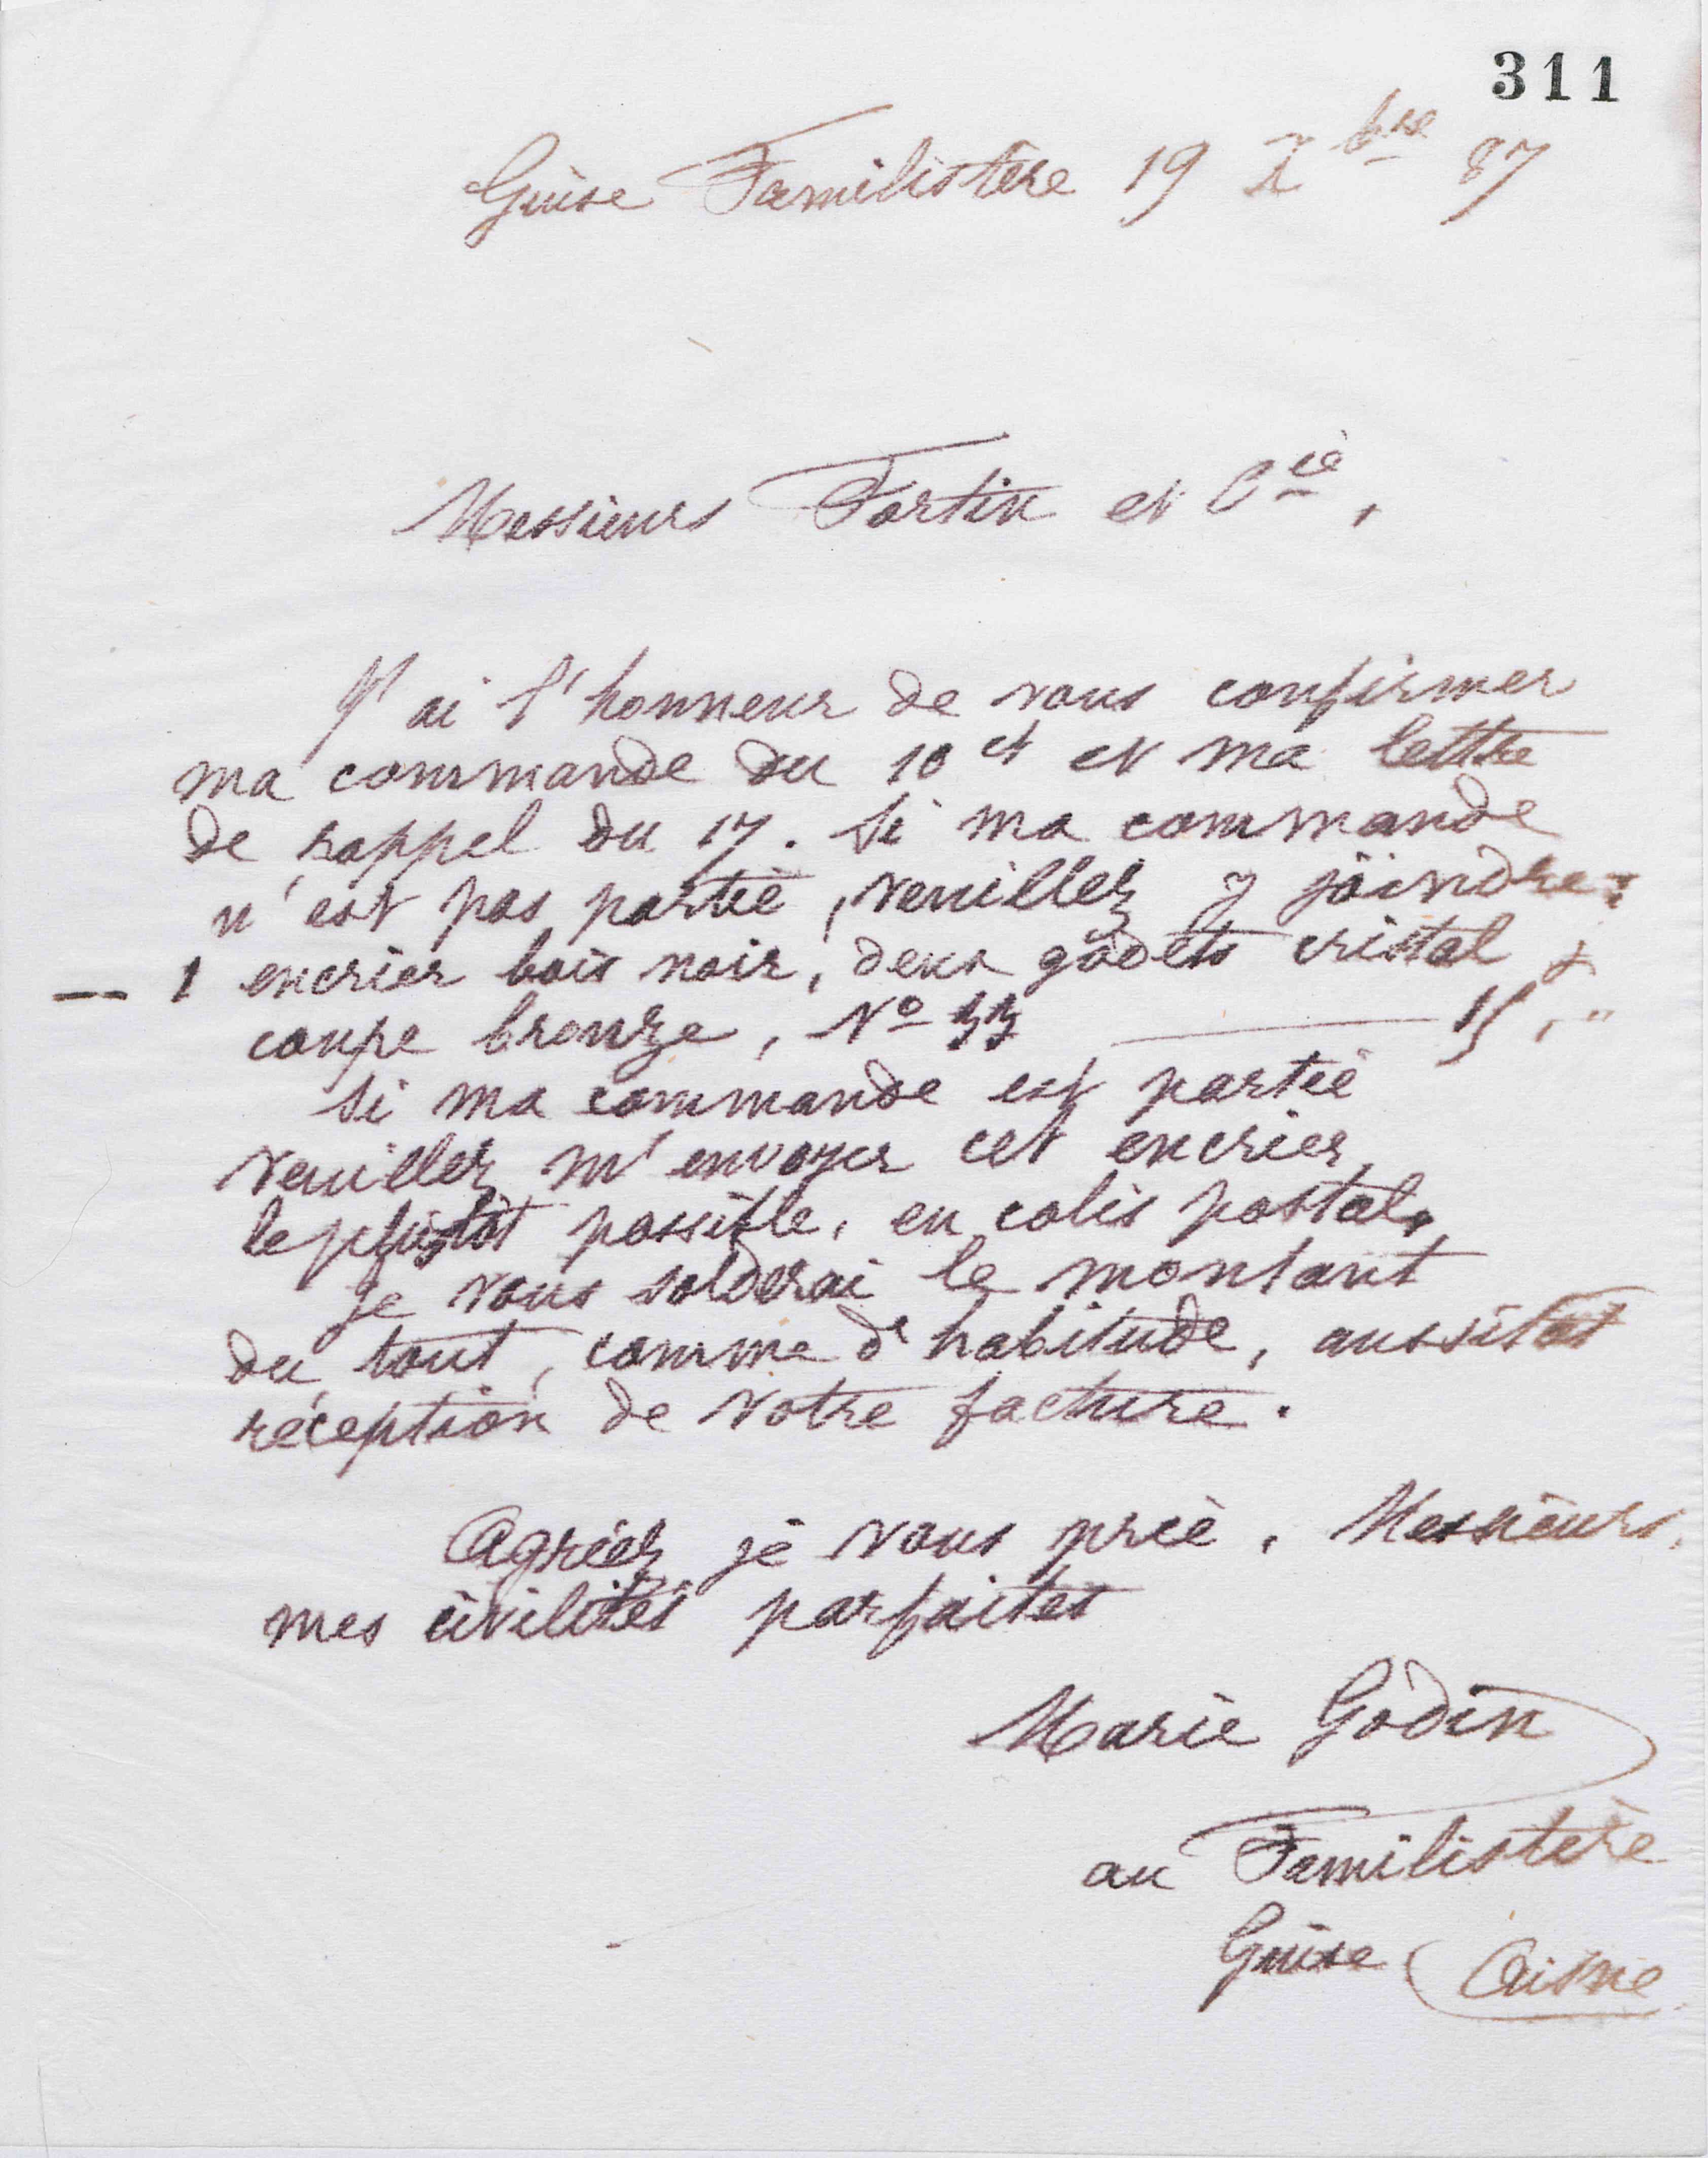 311
Guise Familistère 19 Xbre 87
Messieurs Fortin et Cie,
J'ai l'honneur de vous confirmer
ma commande du 10 ct et ma lettre
de rappel du 17. Si ma commande
n'est pas partie, veuillez y joindre :
— 1 encrier bois noir, deux godets cristal &
coupe bronze, No 33 — 15, "
Si ma commande est partie
veuillez m'envoyer cet encrier,
le plus tôt possible, en colis postal.
Je vous solderai le montant
du tout, comme d'habitude, aussitôt
réception de votre facture.
Agréez je vous prie, Messieurs,
mes civilités parfaites
Marie Godin
au Familistère
Guise (Aisne